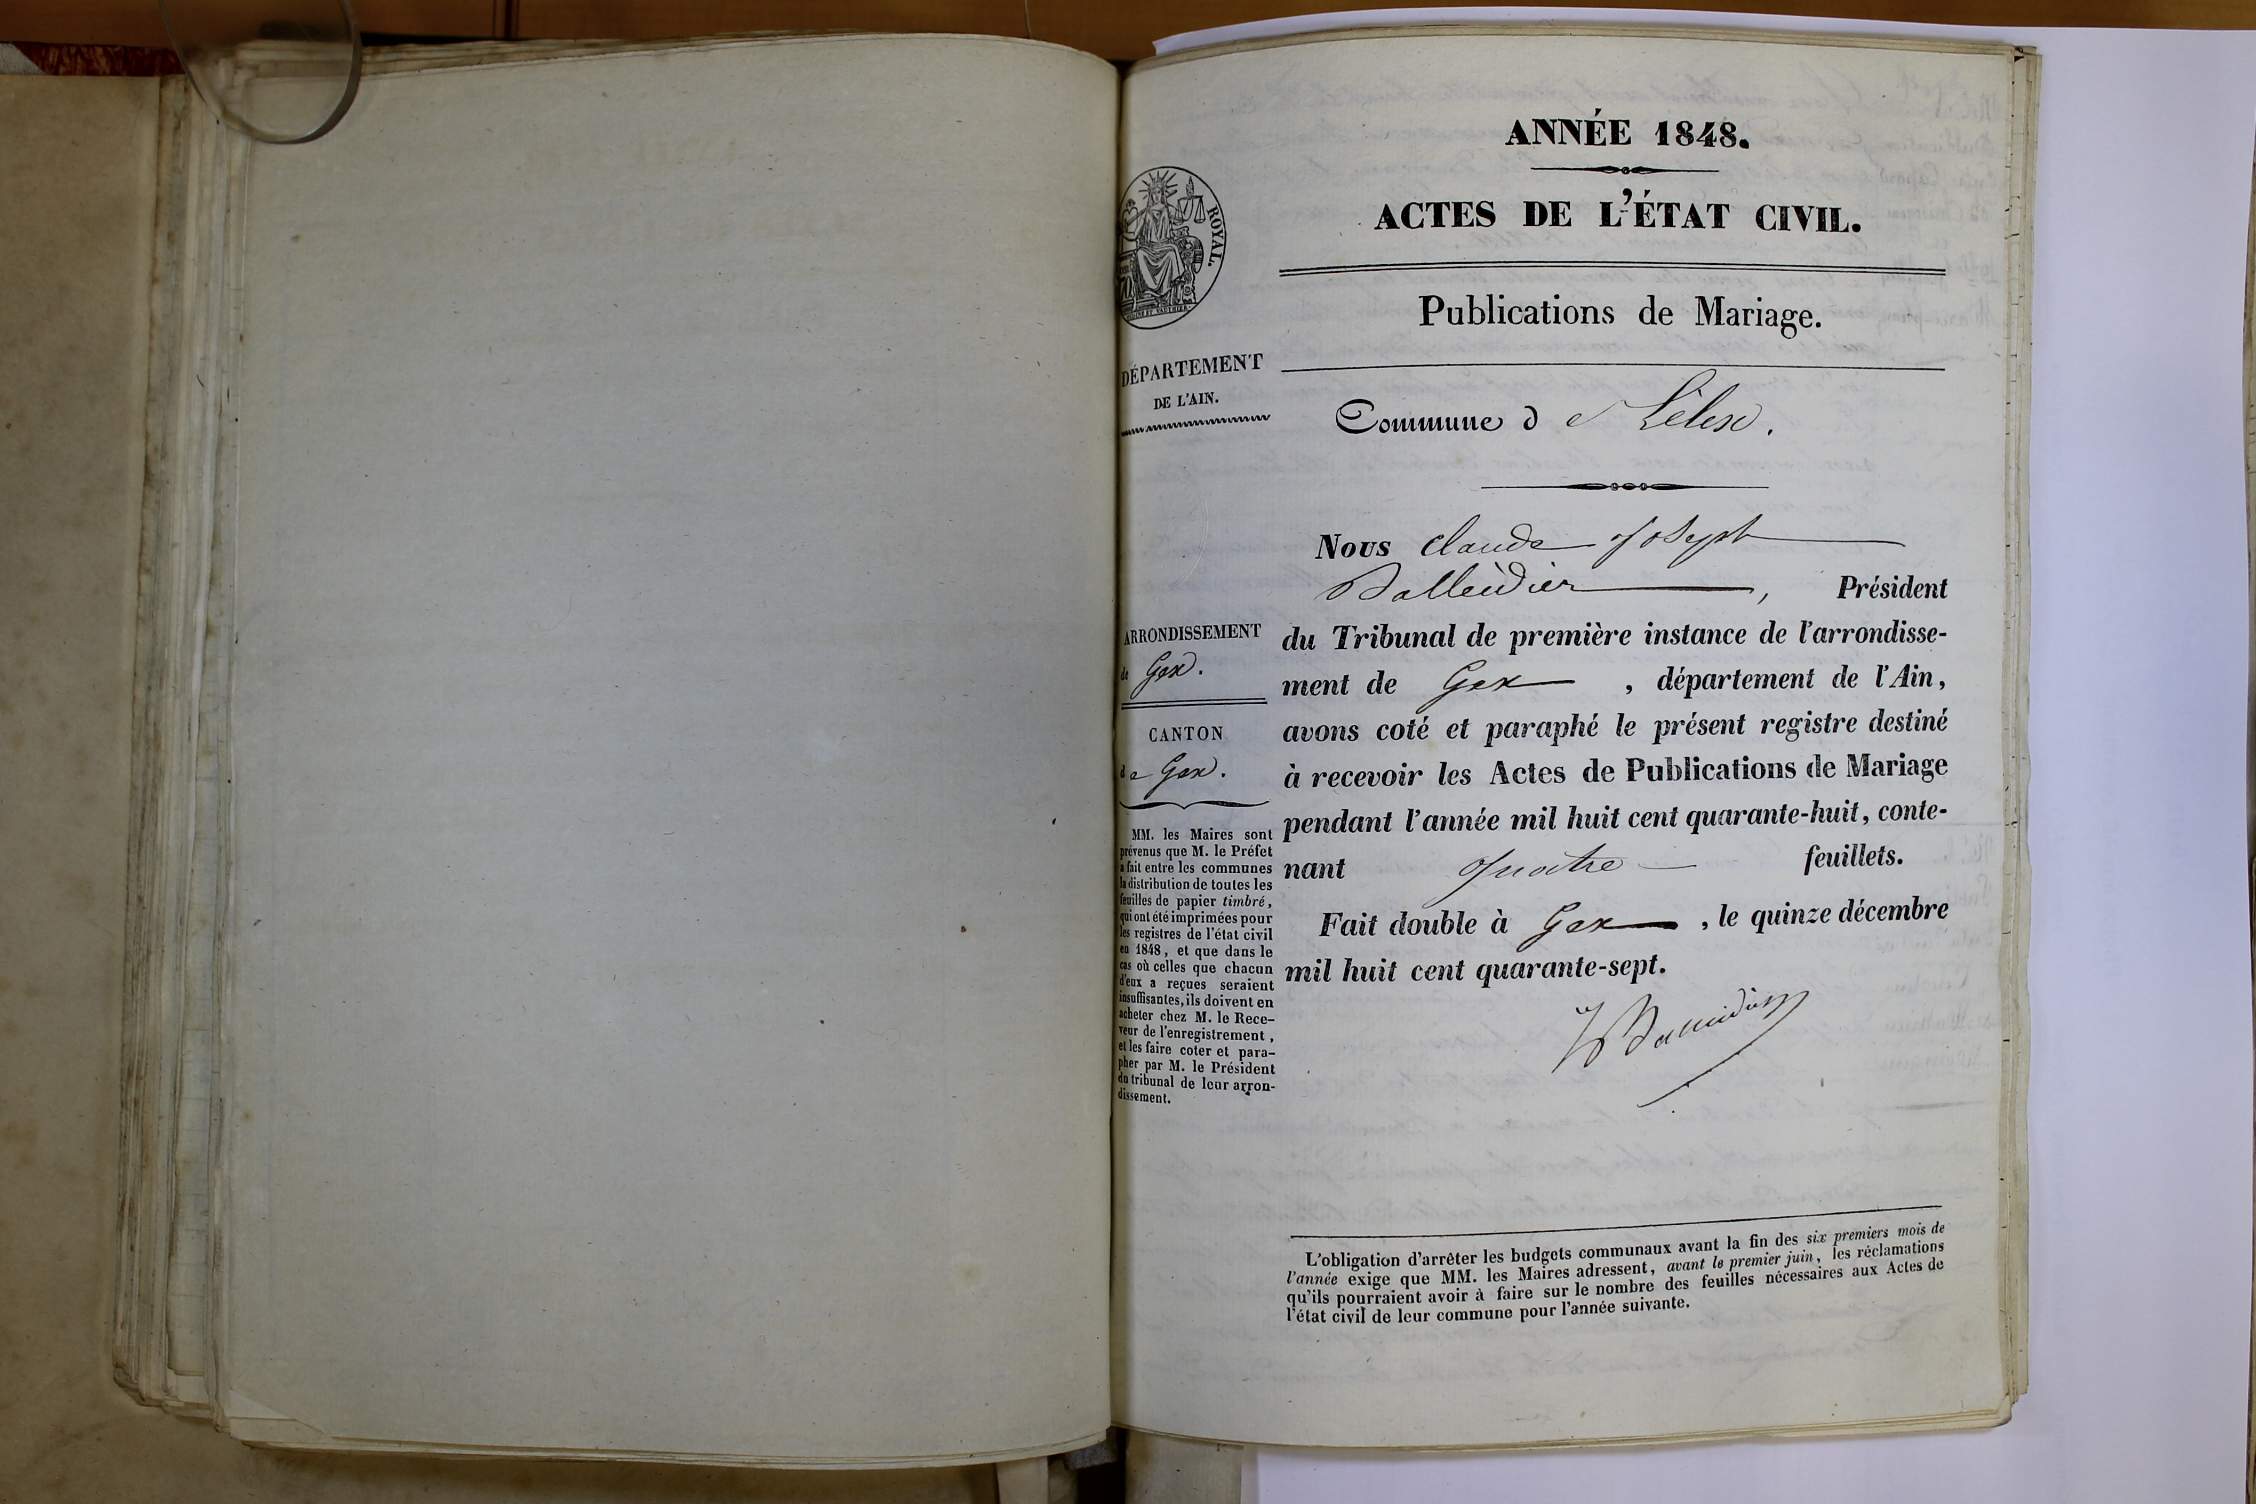 ANNÉE 1848.
ACTES DE L'ÉTAT CIVIL.
Publications de Mariage.
ROYAL.
DÉPARTEMENT
DE L'AIN.
Commune de Lélex.
ARRONDISSEMENT
de Gex.
CANTON
de Gex.
MM. les Maires sont
prévenus que M. le Préfet
a fait entre les communes
la distribution de toutes les
feuilles de papier timbré,
qui ont été imprimées pour
les registres de l'état civil
en 1848, et que dans le
cas où celles que chacun
d'eux a reçues seraient
insuffisantes, ils doivent en
acheter chez M. le Rece-
veur de l'enregistrement,
et les faire coter et para-
pher par M. le Président
du tribunal de leur arron-
dissement.
Nous Claude Joseph
Balleidier, Président
du Tribunal de première instance de l'arrondisse-
ment de Gex, département de l'Ain,
avons coté et paraphé le présent registre destiné
à recevoir les Actes de Publications de Mariage
pendant l'année mil huit cent quarante-huit, conte-
nant quatre feuillets.
Fait double à Gex, le quinze décembre
mil huit cent quarante-sept.
Balleidier
L'obligation d'arrêter les budgets communaux avant la fin des six premiers mois de
l'année exige que MM. les Maires adressent, avant le premier juin, les réclamations
qu'ils pourraient avoir à faire sur le nombre des feuilles nécessaires aux Actes de
l'état civil de leur commune pour l'année suivante.